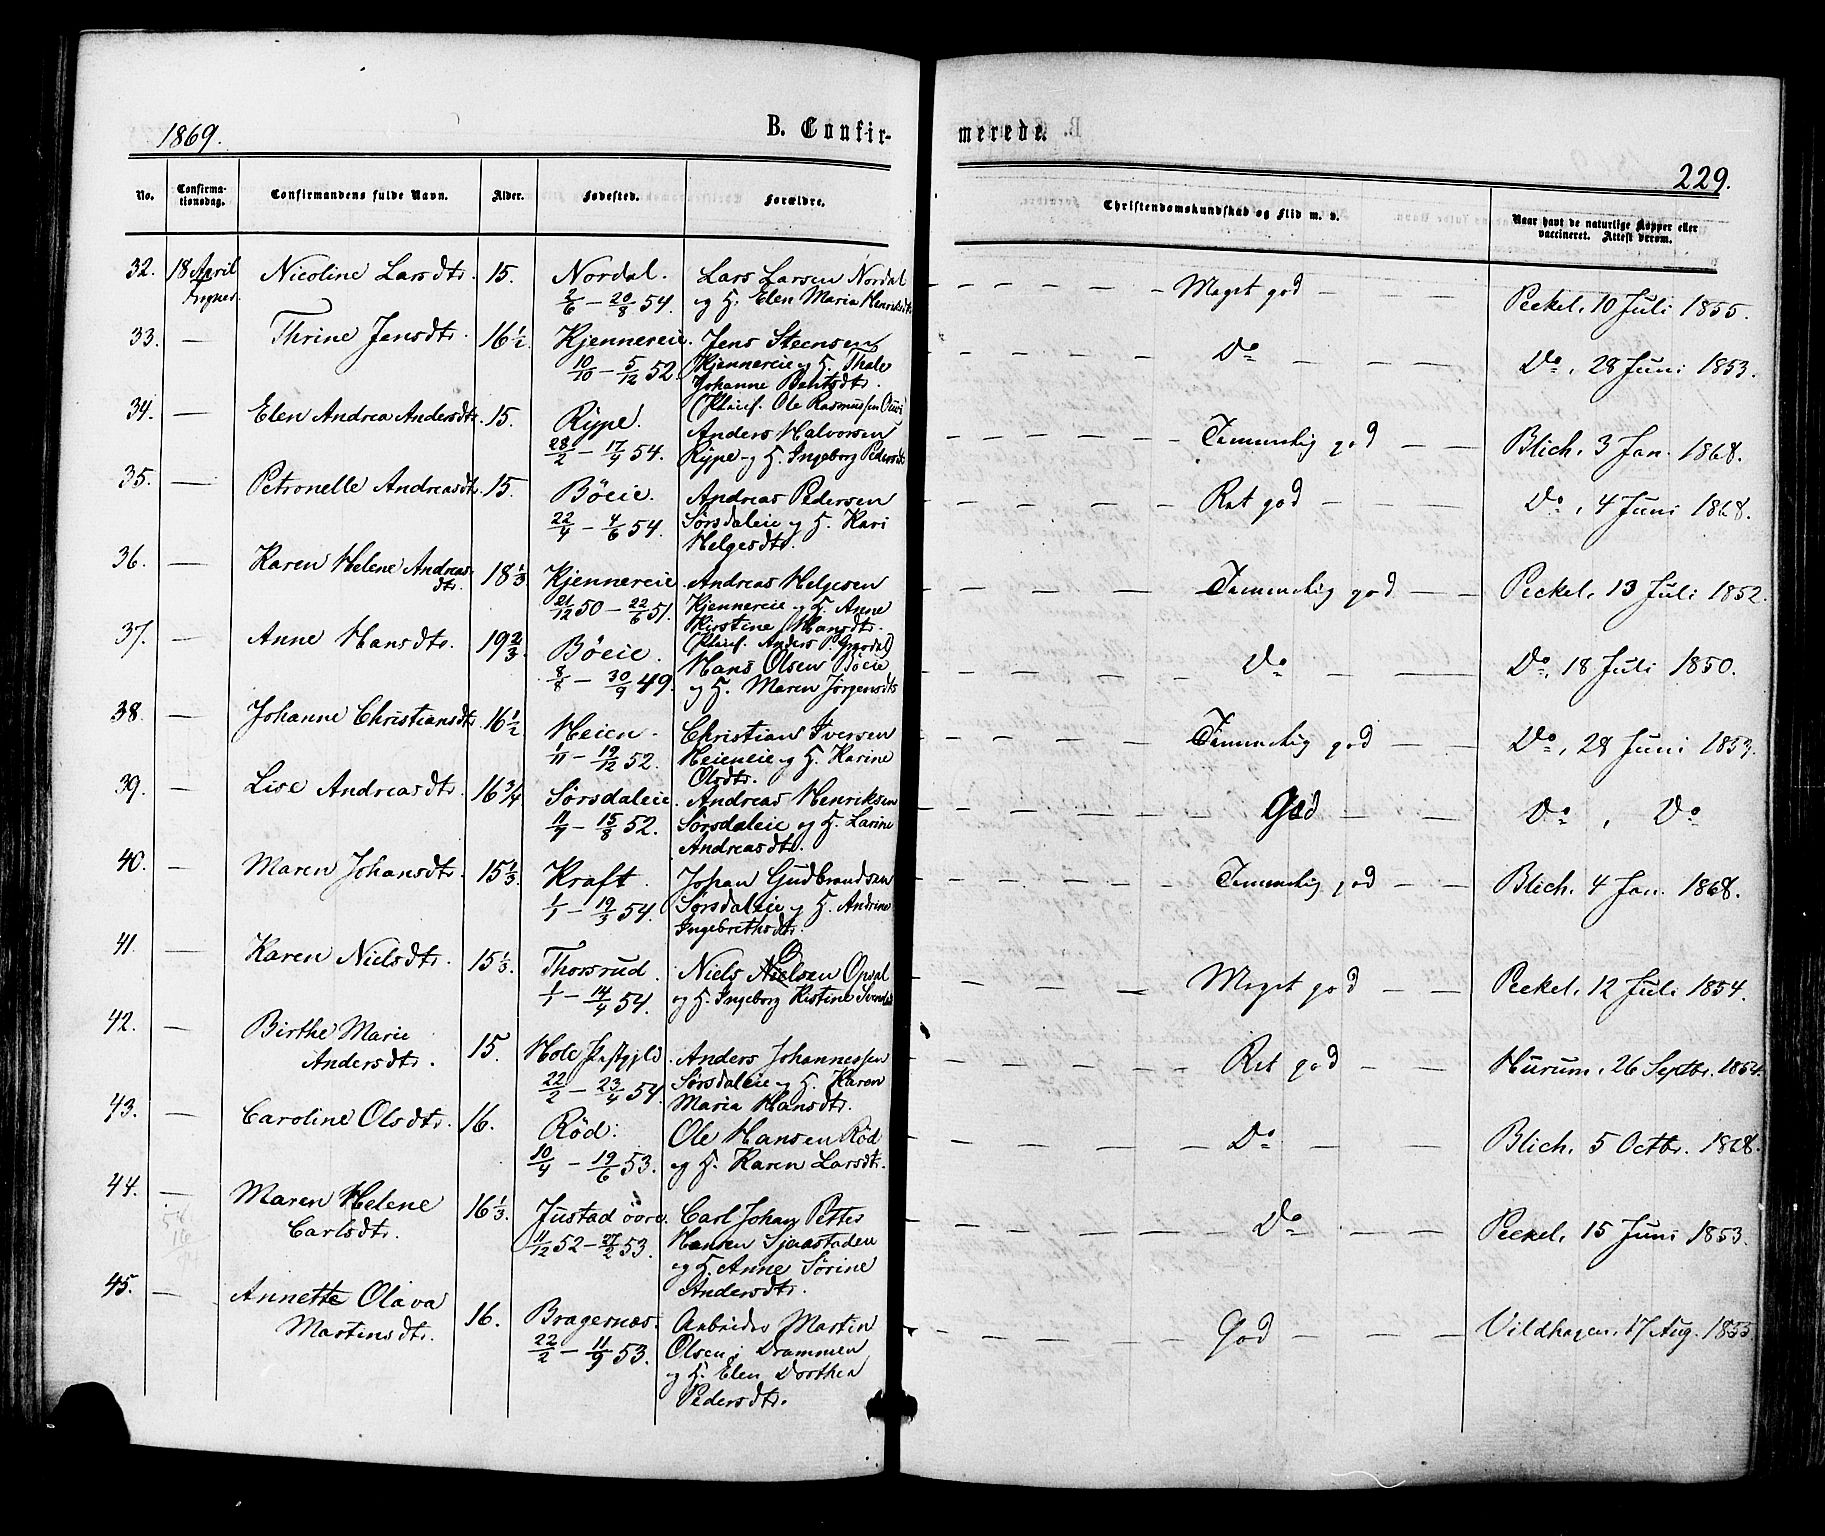 1869.
B. Confir-
merede.
229.
No.
Confirma-
tionsdag.
Confirmandens fulde Navn.
Alder.
Fødested.
Forældre.
Christendomskundskab og Flid m. v.
Naar havt de naturlige Kopper eller
vaccineret. Attest derom.
32. 18 April Nicoline Larsdtr. 15. Nordal. Lars Larsen Nordal — Meget god — Peckel, 10 Juli 1855.
2/6 — 20/8 54. og H. Elen Maria Henriksdtr
33. — Thrine Jensdtr. 16 1/2. Kjennereie. Jens Steensen — Do — Do, 28 Juni 1853.
10/10 — 5/12 52. Kjennereie og H. Thale
Johanne Bentsdtr.
34. — Elen Andrea Andersdtr. 15. Rype. (Pleief. Ole Rasmussen — Temmelig god — Blich, 3 Jan. 1868.
28/2 — 17/4 54. Anders Halvorsen
Rype og H. Ingeborg Pedersdtr
35. — Petronelle Andreasdtr. 15. Böeie. Andreas Pedersen — Ret god — Do, 4 Juni 1868.
22/4 — 4/6 54. Sörsdaleie og H. Kari
Helgesdtr.
36. — Karen Helene Andreas- 18 1/3 Kjennereie. Andreas Helgesen — Temmelig god — Peckel, 13 Juli 1852.
dtr. 21/12 50 — 22/6 51. Kjennereie og H. Anne
Kirstine Hansdtr.
37. — Anne Hansdtr. 19 2/3. Böeie. (Pleief. Anders P. — Do — Do, 18 Juli 1850.
8/8 — 30/9 49. Hans Olsen Böeie
og H. Maren Jörgensdtr
38. — Johanne Christiansdtr. 16 1/2 Heien. Christian Iversen — Temmelig god — Do, 28 Juni 1853.
1/11 — 19/12 52. Heieneie og H. Karine
Olsdtr.
39. — Lise Andreasdtr. 16 3/4 Sörsdaleie. Andreas Henriksen — God — Do, Do
— 15/8 52. Sörsdaleie og H. Larine
Andreasdtr.
40. — Maren Johansdtr. 15 1/3. Kraft. Johan Gudbrandsen — Temmelig god — Blich, 4 Jan. 1868.
1/1 — 19/3 54. Sörsdaleie og H. Andrine
Ingebrethsdtr.
41. — Karen Nielsdtr. 15 1/3. Thorsrud. Niels Nielsen Opsal — Meget god — Peckel, 12 Juli 1854.
1/1 — 14/4 54. og H. Ingeborg Kistine
42. — Birthe Marie 15. Hole Præstgjeld. Anders Johannessen — Ret god — Hurum, 26 Septbr. 1854.
Andersdtr. 22/2 — 23/4 54. Sörsdaleie og H. Karen
Maria Hansdtr.
43. — Caroline Olsdtr. 16. Röd. Ole Hansen Röd — Do — Blich, 5 Octbr. 1868.
10/4 — 19/6 53. og H. Karen Larsdtr.
44. — Maren Helene 16 1/3. Justad övre. Carl Johan Petter — Do — Peckel, 15 Juni 1853.
Carlsdtr. 11/12 52 — 27/2 53. Hansen Sjaastadeie
og H. Anne Sörine
Andersdtr.
45. — Annette Olava 16. Bragernæs. Arbeider Martin — God — Vildhagen, 17 Aug. 1855.
Martinsdtr. 22/2 — 11/9 53. Olsen i Drammen
og H. Elen Dorthea
Pedersdtr.